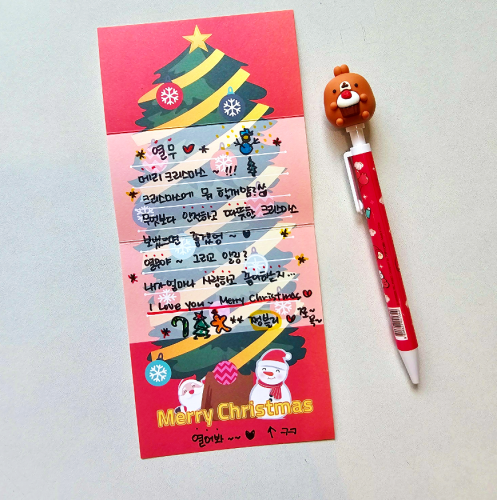 열무 ♥
메리 크리스마스 ~ !!!
크리스마스에 뭐
무엇보다 안전하고 따뜻한 크리스마스
보냈으면 좋겠엉 ~
열무야 ~ 그리고 알지?
내가 얼마나 사랑하고 있는지...
I Love You ~ Merry Christmas ♥
Merry Christmas
열어봐 ~~ ♥ ↑